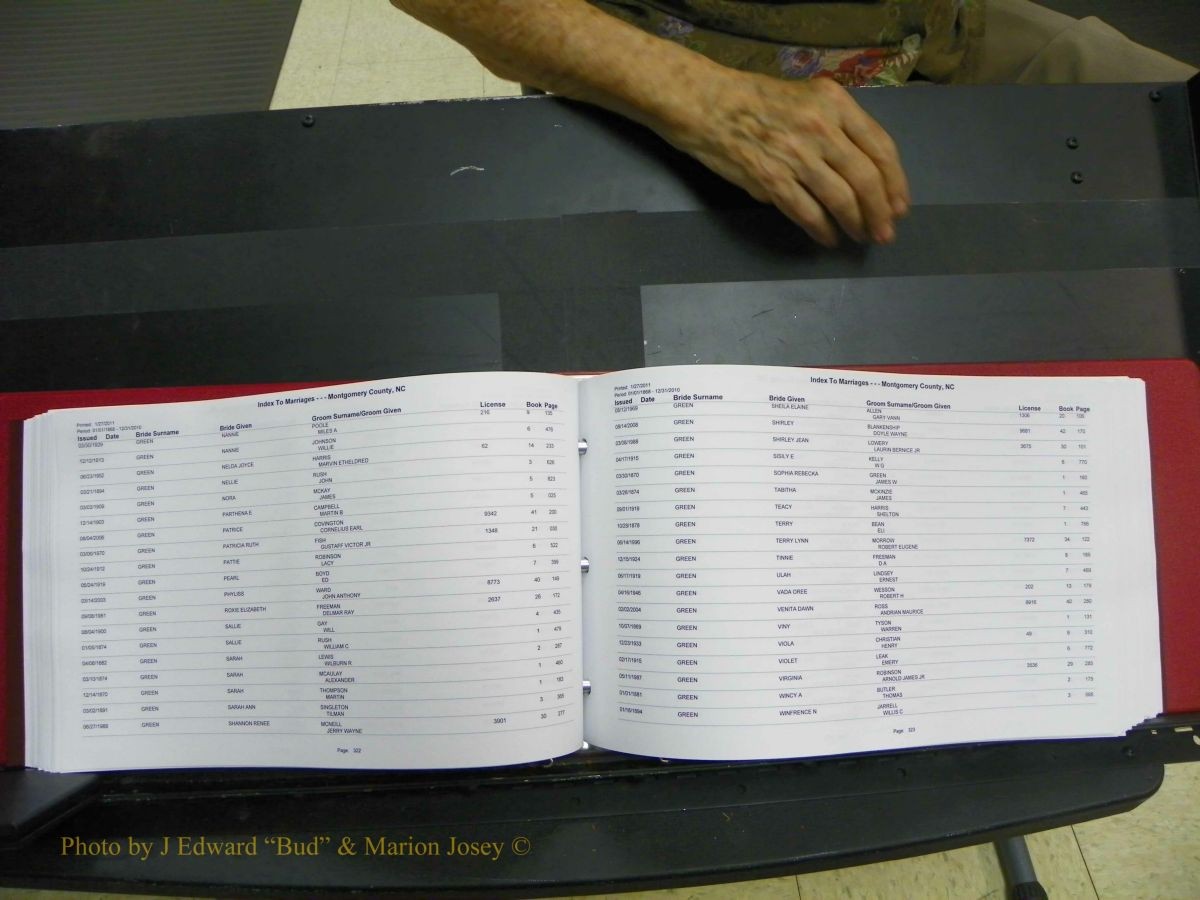 Index To Marriages - - - Montgomery County, NC
Printed: 1/27/2011
Period: 01/01/1868 - 12/31/2010
Issued Date Bride Surname Bride Given Groom Surname/Groom Given License Book Page
03/30/1929 GREEN NANNIE POOLE 216 9 135
MILES A
12/12/1913 GREEN NANNIE JOHNSON 6 476
WILLIE
06/23/1952 GREEN NELDA JOYCE HARRIS 62 14 233
MARVIN ETHELDRED
03/21/1894 GREEN NELLIE RUSH 3 626
JOHN
03/03/1909 GREEN NORA MCKAY 5 823
JAMES
12/14/1903 GREEN PARTHENA E CAMPBELL 5 025
MARTIN B
08/04/2006 GREEN PATRICE COVINGTON 9342 41 200
CORNELIUS EARL
03/06/1970 GREEN PATRICIA RUTH FISH 1348 21 030
GUSTAFF VICTOR JR
10/24/1912 GREEN PATTIE ROBINSON 6 322
LACY
05/24/1919 GREEN PEARL BOYD 7 399
ED
03/14/2003 GREEN PHYLISS WARD 8773 40 149
JOHN ANTHONY
09/08/1981 GREEN ROXIE ELIZABETH FREEMAN 2637 26 172
DELMAR RAY
08/04/1900 GREEN SALLIE GAY 4 435
WILL
01/05/1874 GREEN SALLIE RUSH 1 479
WILLIAM C
04/06/1882 GREEN SARAH LEWIS 2 287
WILBURN R
03/13/1874 GREEN SARAH MCAULAY 1 460
ALEXANDER
12/14/1870 GREEN SARAH THOMPSON 1 183
MARTIN
03/02/1891 GREEN SARAH ANN SINGLETON 3 305
TILMAN
06/27/1988 GREEN SHANNON RENEE MCNEILL 3901 30 277
JERRY WAYNE
Page 322
Index To Marriages - - - Montgomery County, NC
Printed: 1/27/2011
Period: 01/01/1868 - 12/31/2010
Issued Date Bride Surname Bride Given Groom Surname/Groom Given License Book Page
09/12/1969 GREEN SHEILA ELAINE ALLEN 1306 20
GARY VANN
08/14/2008 GREEN SHIRLEY BLANKENSHIP 9681 42 170
DOYLE WAYNE
03/08/1988 GREEN SHIRLEY JEAN LOWERY 3675 30 101
LAURIN BERNICE JR
04/17/1915 GREEN SISILY E KELLY 6 770
W G
03/30/1870 GREEN SOPHIA REBECKA GREEN 1 160
JAMES W
03/26/1874 GREEN TABITHA MCKINZIE 1 465
JAMES
09/01/1919 GREEN TEACY HARRIS 7 443
SHELTON
10/29/1878 GREEN TERRY BEAN 1 766
ELI
06/14/1996 GREEN TERRY LYNN MORROW 7372 34 122
ROBERT EUGENE
12/15/1924 GREEN TINNIE FREEMAN 8 185
D A
06/17/1919 GREEN ULAH LINDSEY 7 469
ERNEST
04/16/1946 GREEN VADA OREE WESSON 202 13 179
ROBERT H
02/02/2004 GREEN VENITA DAWN ROSS 8916 40 290
ANDRIAN MAURICE
10/07/1869 GREEN VINY TYSON 1 131
WARREN
12/23/1933 GREEN VIOLA CHRISTIAN 49 9 312
HENRY
02/17/1915 GREEN VIOLET LEAK 6 772
EMERY
05/11/1987 GREEN VIRGINIA ROBINSON 3536 29 283
ARNOLD JAMES JR
01/01/1881 GREEN WINCY A BUTLER 2 175
THOMAS
01/16/1894 GREEN WINFRENCE N JARRELL 3 598
WILLIS C
Page 323
Photo by J Edward “Bud” & Marion Josey ©